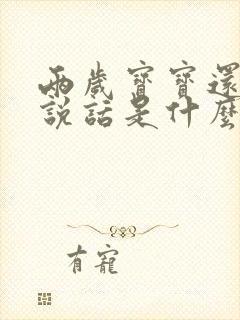 兩歲寶寶還
說話是什麼
有寵